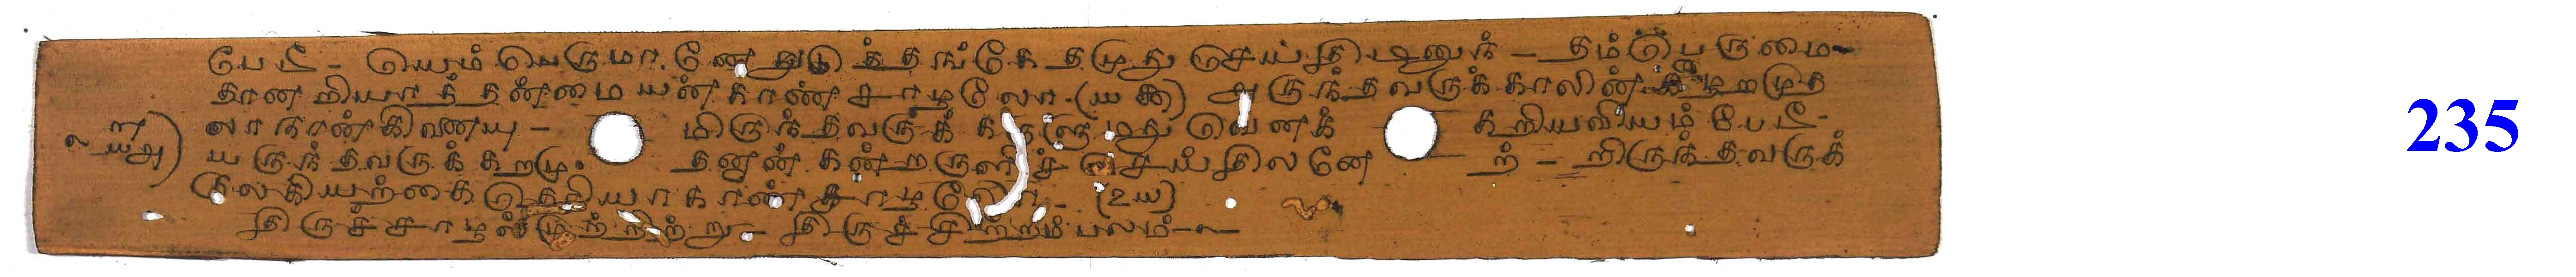 பேடீ - யெம்பெருமானேதுடுத்தங்கே தமுது செய்திடினுந் - தம்பெருமை
தானறியாத்தன்மையன்காண்சாழலோ - (யக) அருந்தவருக்காலின்கீழறமுத
லாநான்கினையு - மிருந்தவருக் கருளுமது வெனக் கறியவியம்பேடீ -
யருந்தவருக்கறமு தனான்கன்றருளிச் செய்திலனே ற் - றிருந்தவருக்
குலகியற்கை தெரியாகாண்சாழலோ - (உய)
திருச்சாழல் முற்றிற்று - திருச்சிற்றம்பலம் -
235